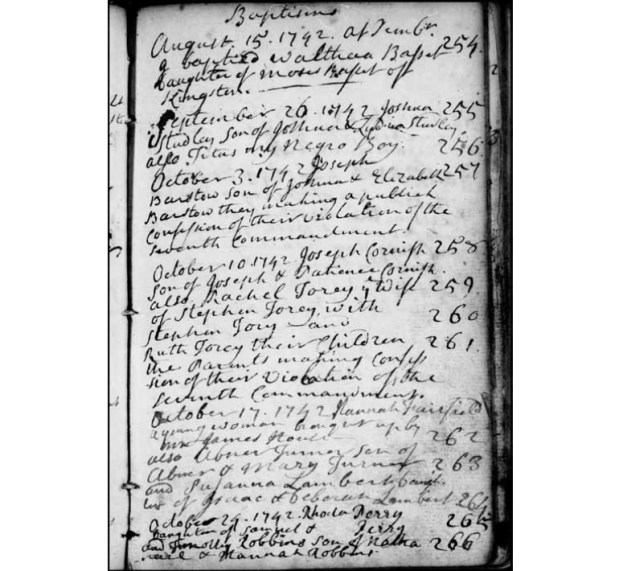 Baptisms
August. 15. 1742. at Pembr.
g baptized Walthea Basset 254.
Daughter of Moses Basset of
Kingston.
September 26. 1742 Joshua 255
Studley Son of Joshua & Lydia Studley
also Titus my Negro Boy. 256
October 3. 1742 Joseph 257
Barstow Son of Joshua & Elizabeth
Barstow they making a publick
Confession of their Violation of the
Seventh Commandment.
October 10. 1742 Joseph Cornish 258
Son of Joseph & Patience Cornish.
also, Rachel Torey ye Wife 259
of Stephen Torey, with
Stephen Tory and 260
Ruth Torey their Children 261.
the Parents making Confes
sion of their Violation of the
Seventh Commandment.
October 17. 1742 Hannah Fairfield
a young woman brought up by
Mr James House 262
also Abner Turner Son of
Abner & Mary Turner 263
and Susanna Lambert Daugh
ter of Isaac & Deborah Lambert 264
October 24. 1742. Rhoda Perry
Daughter of Samuel & Perry 265
and Timothy Robbins Son of
& Hannah Robbins 266